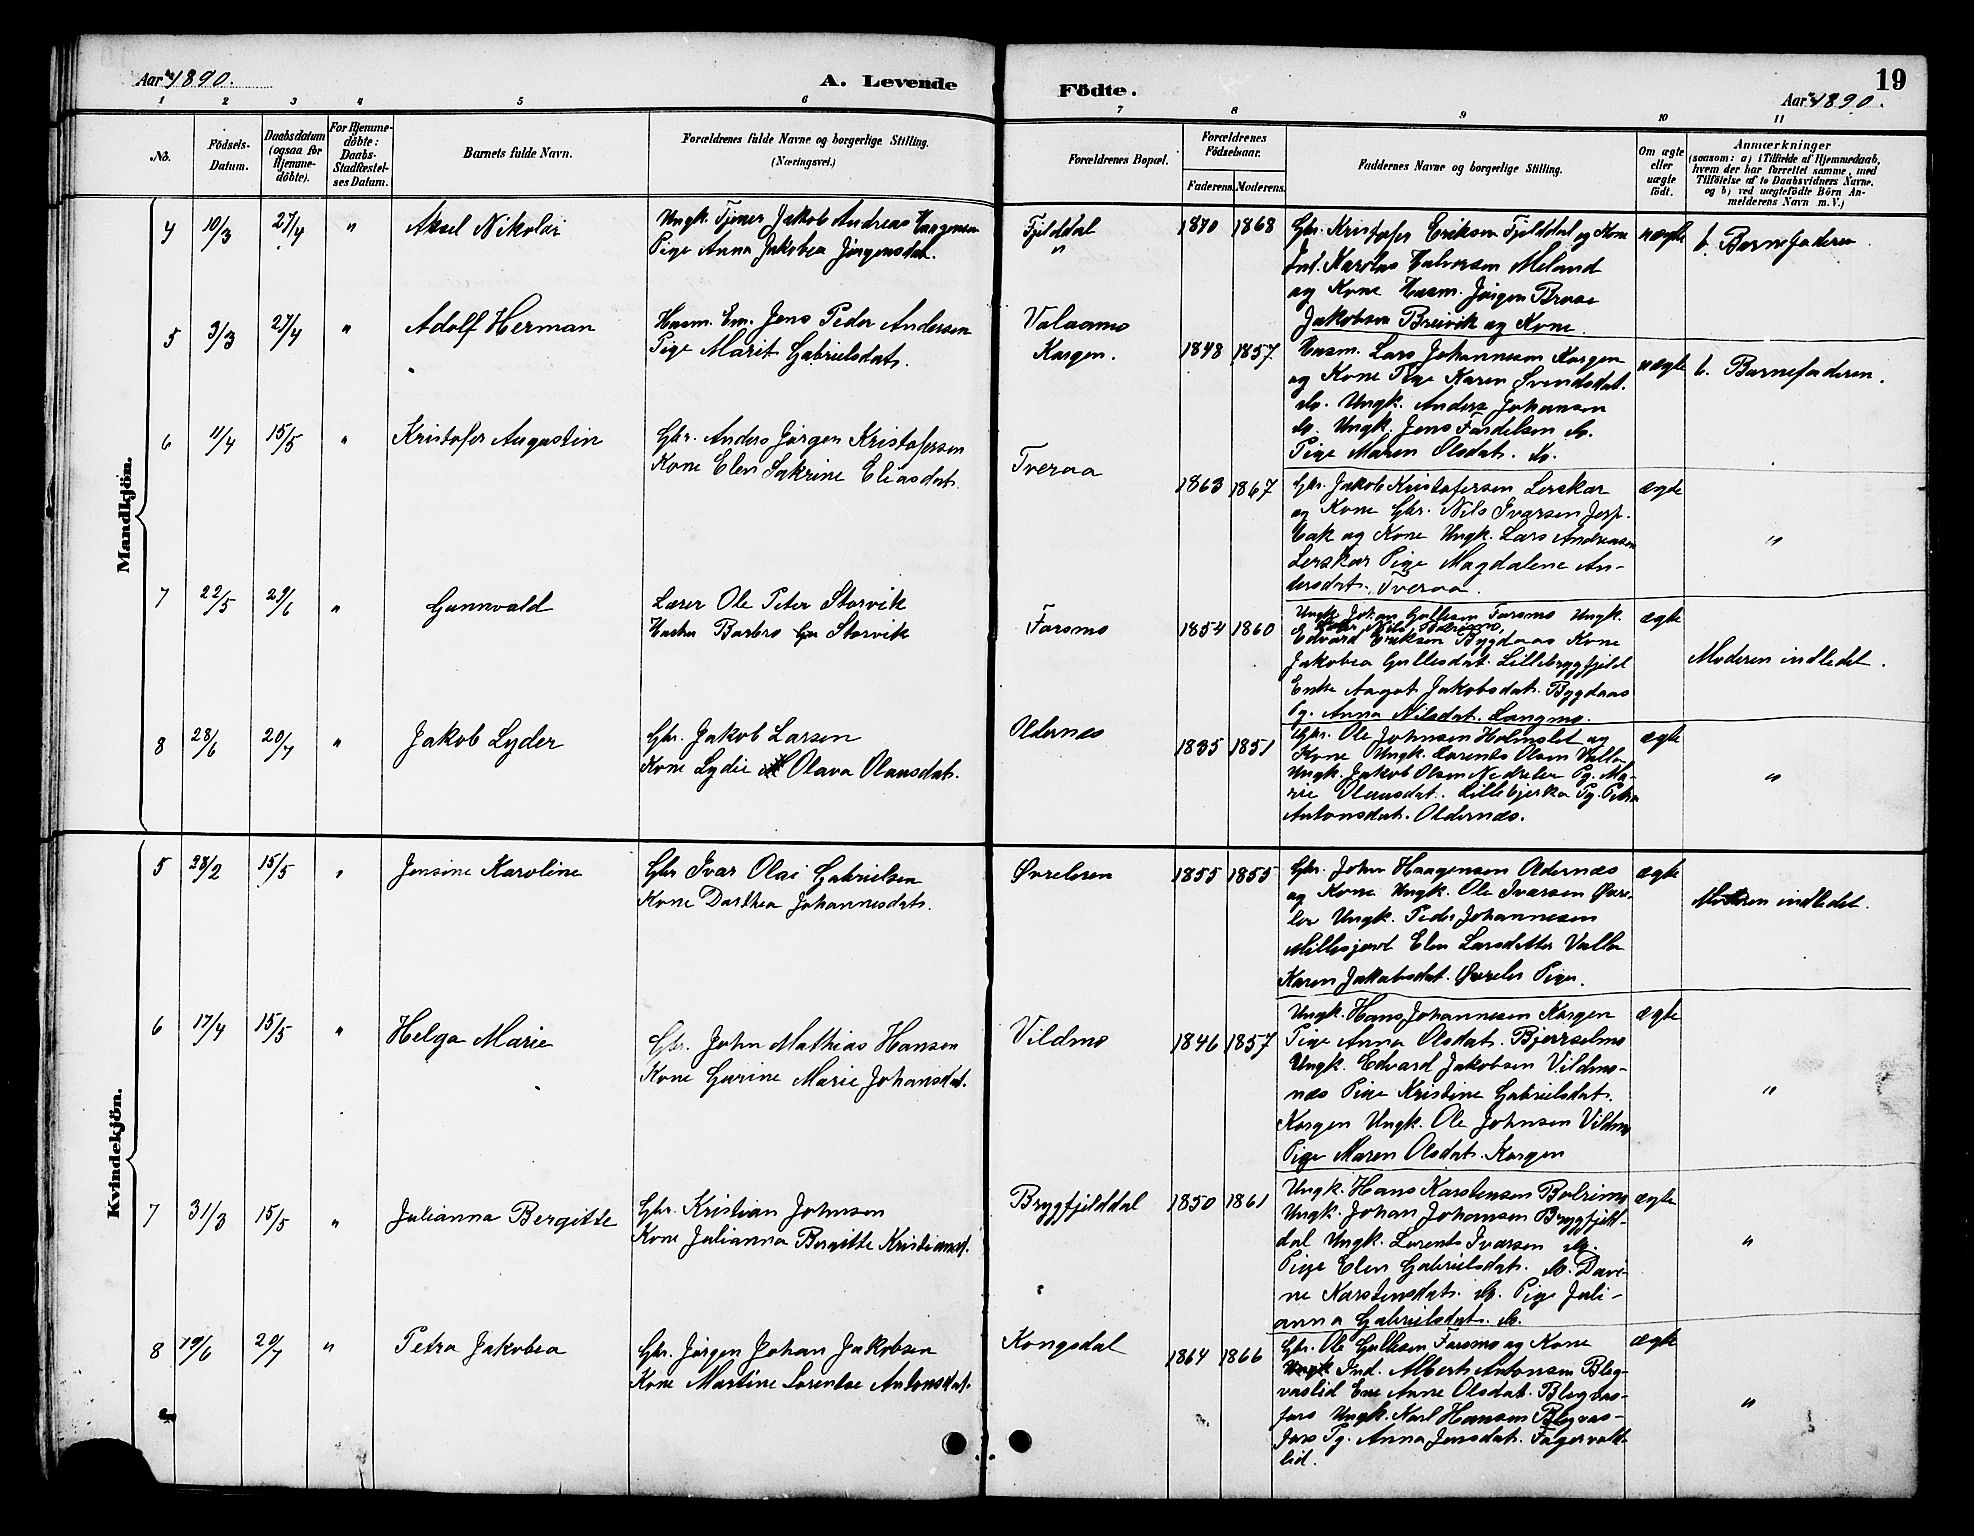 Aar 1890.
A. Levende
Födte.
19
Aar 1890.
1 2 3 4 5 6 7 8 9 10 11
No.
Födsels-Datum.
Daabsdatum (ogsaa for Hjemmedöbte).
For Hjemmedöbte: Daabs-Stadfæstelses Datum.
Barnets fulde Navn.
Forældrenes fulde Navne og borgerlige Stilling. (Næringsvei.)
Forældrenes Bopæl.
Forældrenes Födselsaar.
Faderens. Moderens.
Faddernes Navne og borgerlige Stilling.
Om ægte eller uægte födt.
Anmærkninger
(saasom: a) i Tilfælde af Hjemmedaab,
hvem der har forrettet samme, med
Tilföielse af to Daabsvidners Navne.
og b) ved uegtefödte Börn An-
melderens Navn m. V.)
Mandkjön.
4 10/3 27/4 " Aksel Nikolai
Ungk. Tjener Jakob Andreas
Pige Anna Jakobea Jörgensdat.
Fjelddal
"
1870 1868
Gbr. Kristofer Eriksen Fjelddal og Kone
Ind. Karolus Halvorsen Meland
og Kone Husm. Jörgen
Jakobsen Breivik og Kone.
uægte
b. Barnefaderen.
5 3/3 27/4 " Adolf Herman
Husm. Em. Jens Peder Andersen
Pige Marit Gabrielsdat.
Valaamo
Korgen.
1848 1857
Husm. Lars Johannesen Korgen
og Kone Pige Karen Svendsdat.
do. Ungk. Anders Johansen
do. Ungk. Jens do.
Pige Maren Olsdat. do.
uægte
b. Barnefaderen.
6 11/4 15/5 " Kristofer Augustin
Gbr. Anders Jörgen Kristofersen
Kone Elen Sakrine Eliasdat.
Tveraa
1863 1867
Gbr. Jakob Kristofersen Lerskar
og Kone Gbr. Nils Ivarsen Jerp-
bak og Kone Ungk. Lars Andreasen
Lerskar Pige Magdalene An-
dersdat. Tveraa.
ægte
"
7 22/5 29/6 " Gunnvald
Lærer Ole Peter Storvik
Hustru Barbro Storvik
Farsmo
1854 1860
Ungk. Johan Gullesen Farsmo Ungk.
Edvard Eriksen Bygdaas Kone
Jakobea Gullesdat. Lillebryggfjeld
Enke Aagot Jakobsdat. Bygdaas
Pg. Anna Nilsdat. Langmo.
ægte
Moderen indledet.
8 28/6 20/7 " Jakob Lyder
Gbr. Jakob Larsen
Kone Lydie Olava Olausdat.
Oldernæs
1835 1851
Gbr. Ole Johnsen Holmslet og
Kone Ungk. Lorents Olsen Valla
Ungk. Jakob Olsen Nedreler Pg. Ma-
rie Olausdat. Lillebjerka Pg. Petra
Antonsdat. Oldernæs.
ægte
"
Kvindekjön.
5 28/2 15/5 " Jensine Karoline
Gbr Ivar Olai Gabrielsen
Kone Dorthea Johannesdat.
Øvreleren
1855 1855
Gbr. John Haagensen Oldernæs
og Kone Ungk. Ole Ivarsen Øvre-
ler Ungk. Peder Johannesen
Millesjord Elen Larsdatter Valla
Karen Jakobsdat. Øvreler Pige.
ægte
Moderen indledet.
6 17/4 15/5 " Helga Marie
Gbr. John Mathias Hansen
Kone Gurine Marie Johansdat.
Vildmo
1846 1857
Ungk. Hans Johannesen Korgen
Pige Anna Olsdat. Bjerrselmo
Ungk. Edvard Jakobsen Vildmo-
næs Pige Kristine Gabrielsdat.
Korgen Ungk. Ole Johnsen Vildmo
Pige Maren Olsdat. Korgen
ægte
"
7 31/3 15/5 " Julianna Bergitte
Gbr. Kristian Johnsen
Kone Julianna Bergitte Kristiansd.
Bryggfjelddal
1850 1861
Ungk. Hans Karstensen Bolrimo
Ungk. Johan Johansen Bryggfjeld-
dal Ungk. Lorents Ivarsen do.
Pige Elen Gabrielsdat. do. Davi-
ne Karstensdat. do. Pige Juli-
anna Gabrielsdat. do.
ægte
"
8 19/6 20/7 " Petra Jakobea
Gbr. Jörgen Johan Jakobsen
Kone Martine Lorentse Antonsdat.
Kongsdal
1864 1866
Gbr. Ole Gullesen Farsmo og Kone
Ind. Albert Antonsen Bleg-
vaslid Anne Olsdat. Blegvas-
fors Ungk. Karl Hansen Blegvas-
fors Pg. Anna Jensdat. Fagervatt-
lid.
ægte
"